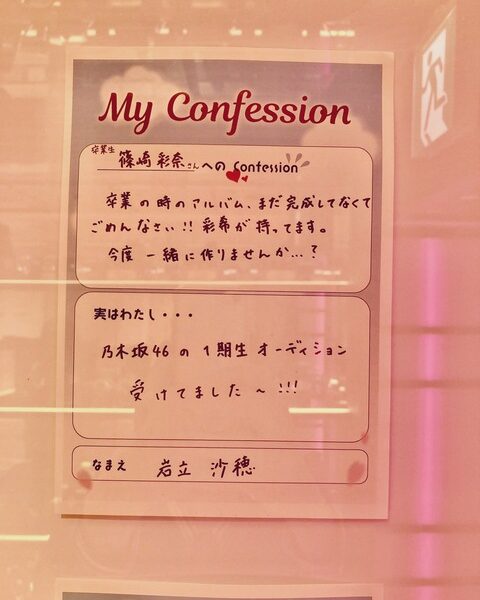 My Confession
卒業生 篠崎 彩奈さんへの confession
卒業の時のアルバム、まだ完成してなくて
ごめんなさい!! 彩希が持ってます。
今度 一緒に作りませんか…?
実はわたし・・・
乃木坂46の1期生オーディション
受けてました〜!!!
なまえ 岩立 沙穂